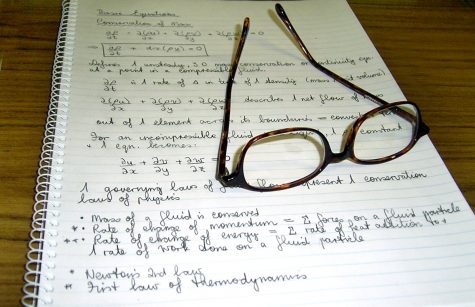 Basic Equations
Conservation of Mass
∂ρ/∂t + ∂(ρu)/∂x + ∂(ρv)/∂y + ∂(ρw)/∂z = 0
⇒ ∂ρ/∂t + div(ρu) = 0
1 unsteady, 3D mass conservation or continuity eqn
at a point in a compressible fluid.
∂ρ/∂t is 1 rate of Δ in of 1 density (mass volume)
∂(ρu)/∂x + ∂(ρv)/∂y + ∂(ρw)/∂z describes 1 net flow of
out of 1 element across its boundaries =
For an incompressible fluid 1 constant
+ 1 eqn. becomes:
∂u/∂x + ∂v/∂y + ∂w/∂z = 0
1 governing laws of represent 1 conservation
laws of physics
• Mass of a fluid is conserved
* • Rate of change of momentum = Σ forces on a fluid particle
** • Rate of change of energy = Σ rate of heat addition to +
1 rate of work done on a fluid particle
* Newton's 2nd law
** First law of thermodynamics